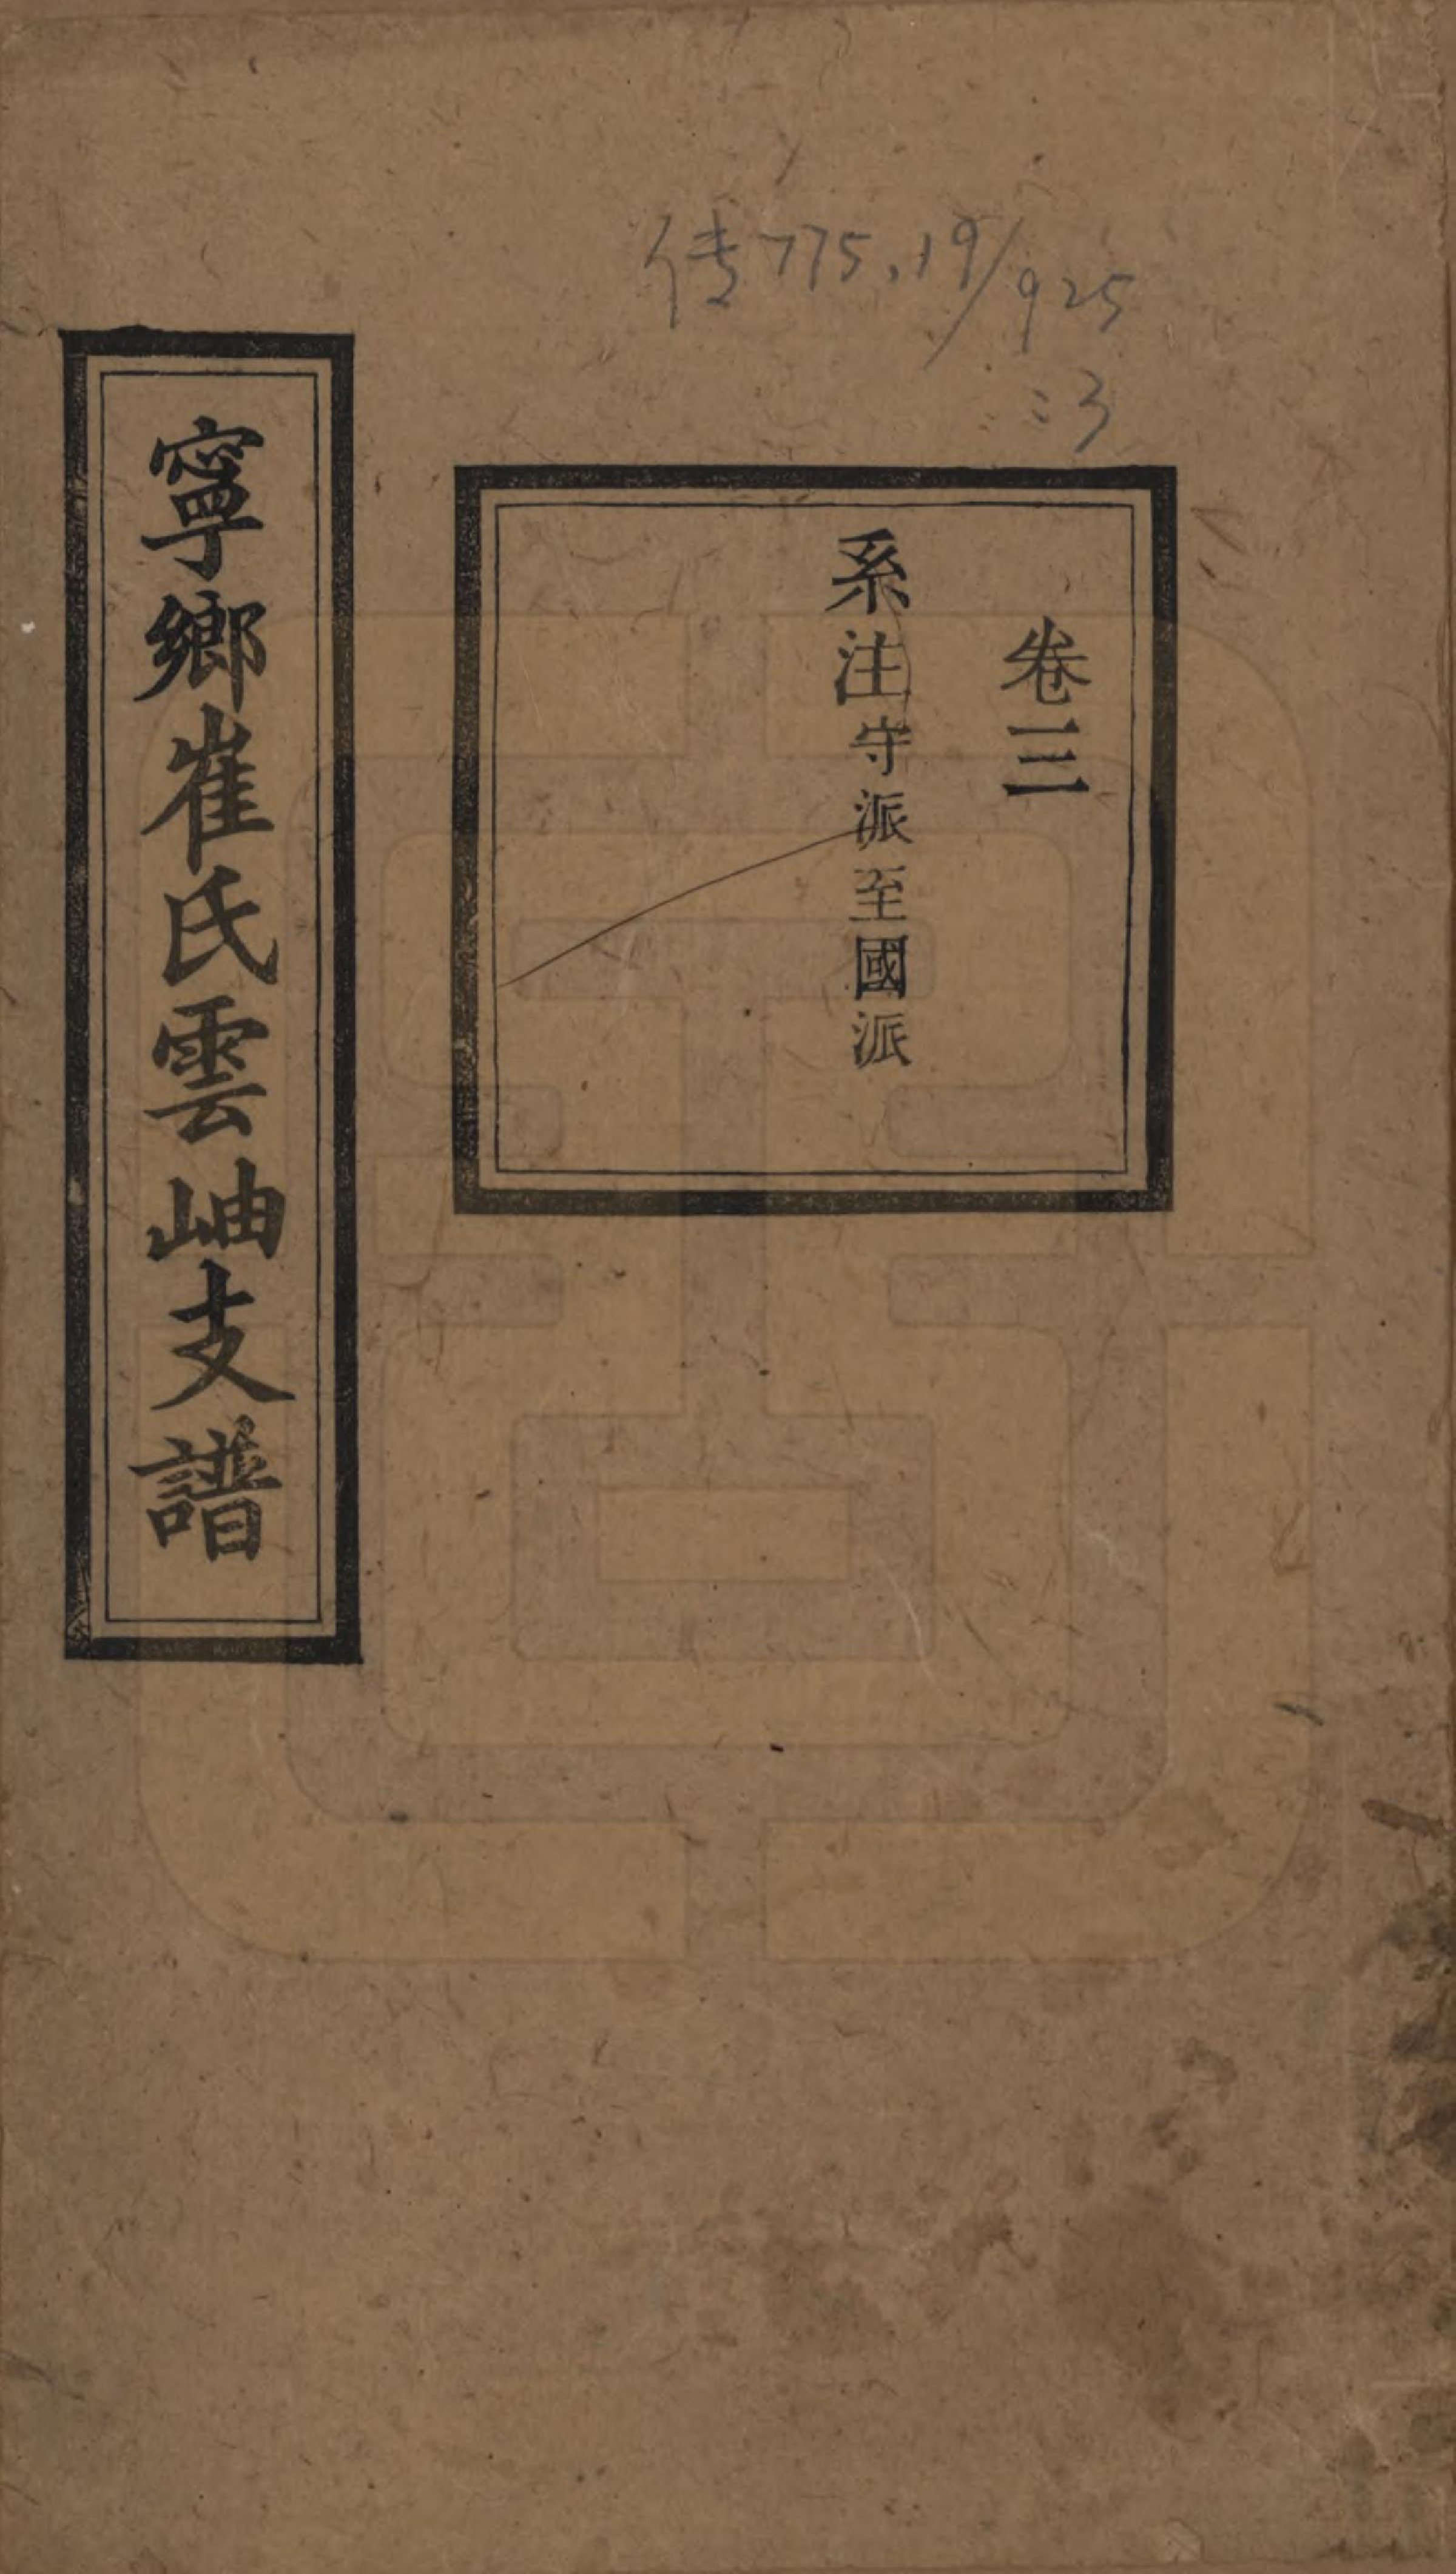 传775.19/925
:3
卷三
系注守派至國派
寧鄉崔氏雲岫支譜